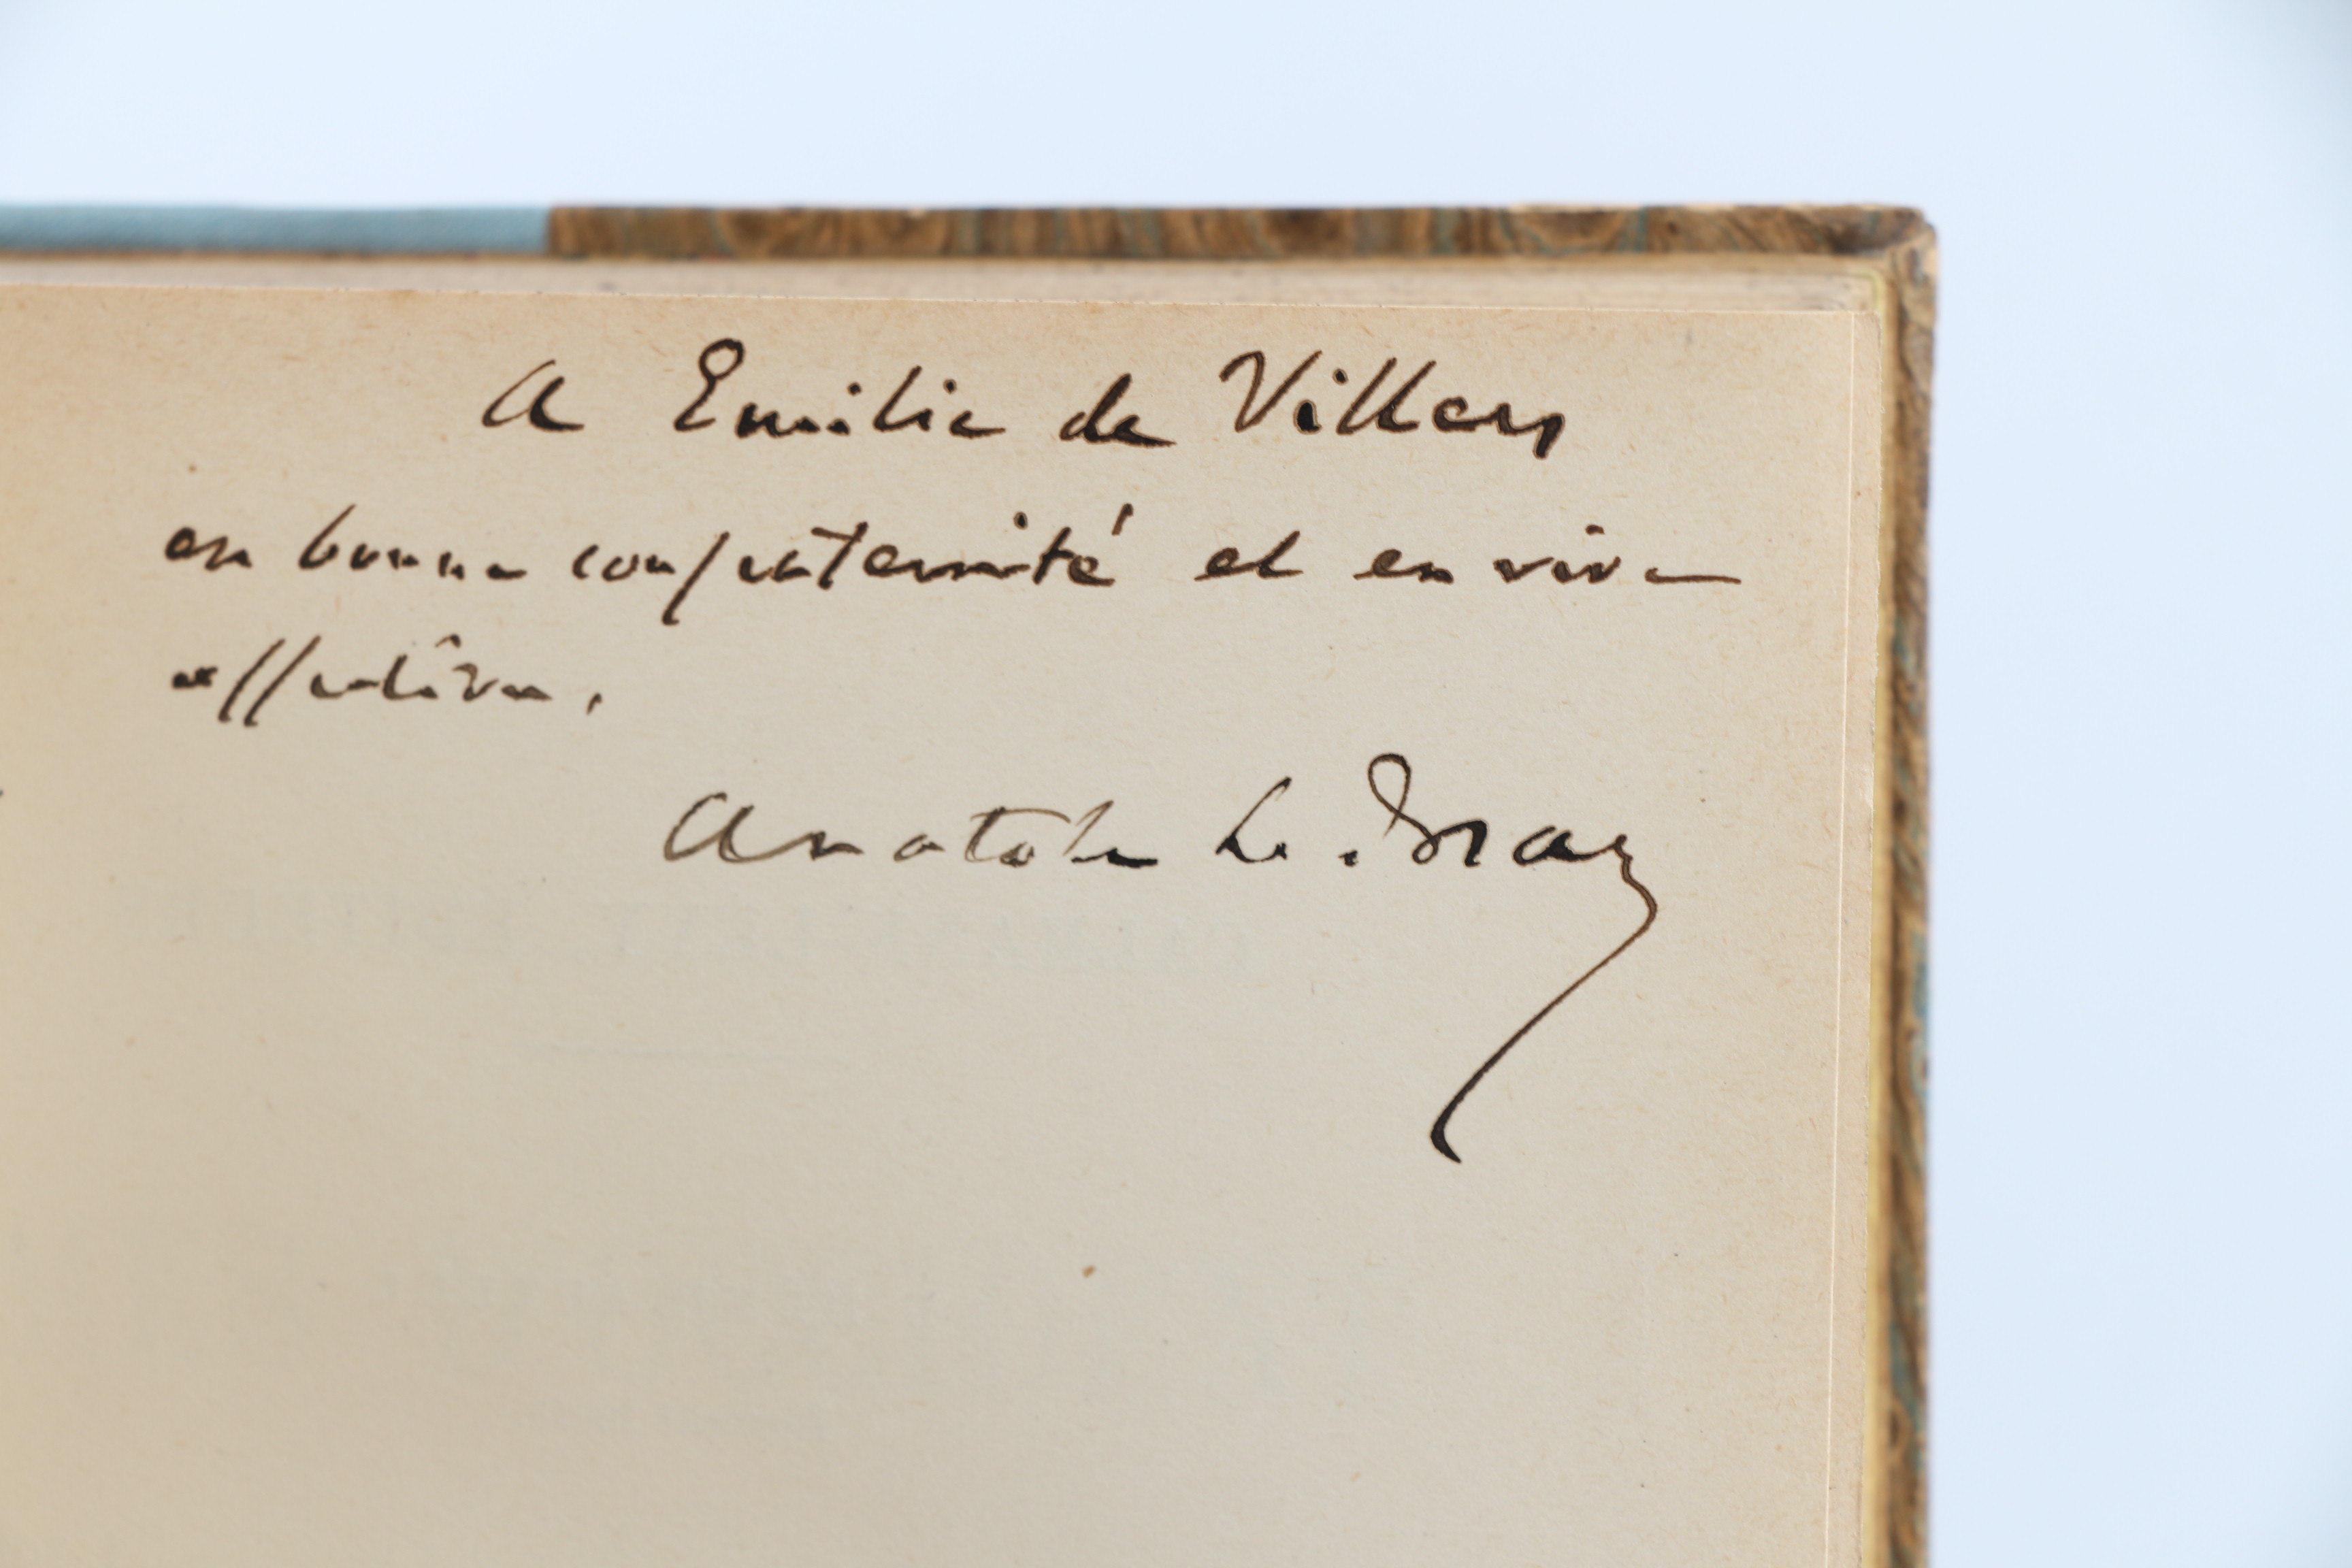 A Emilie de Villers
en bonne confraternité et en vive
affection.
Anatole Le Braz